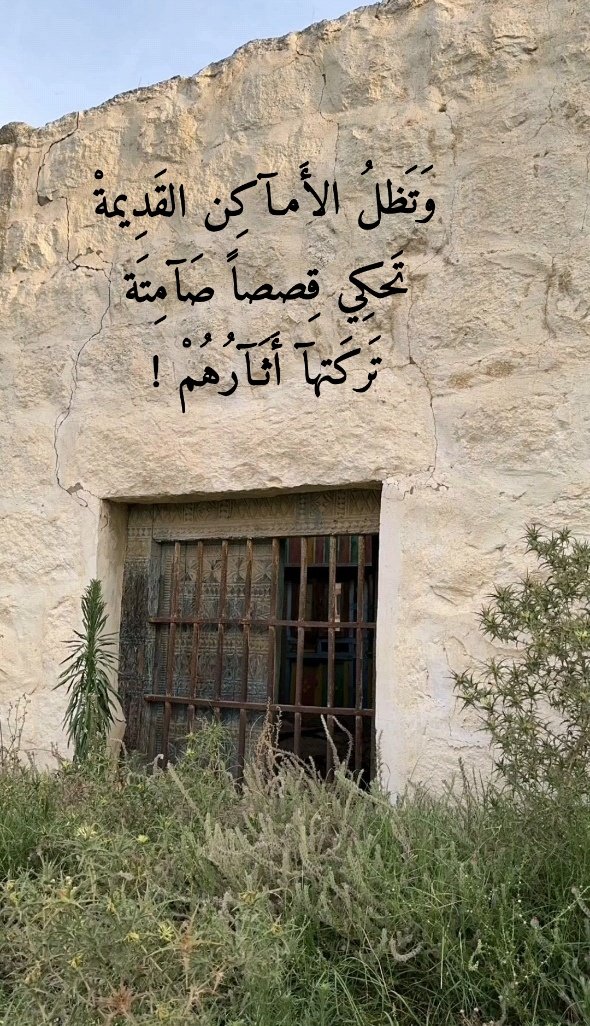 وَتَظلُ الأَمآكِن القَدِيمةْ
تَحكِي قِصصاً صَآمِتَة
تَركَتهآ أَثَآرُهُمْ !